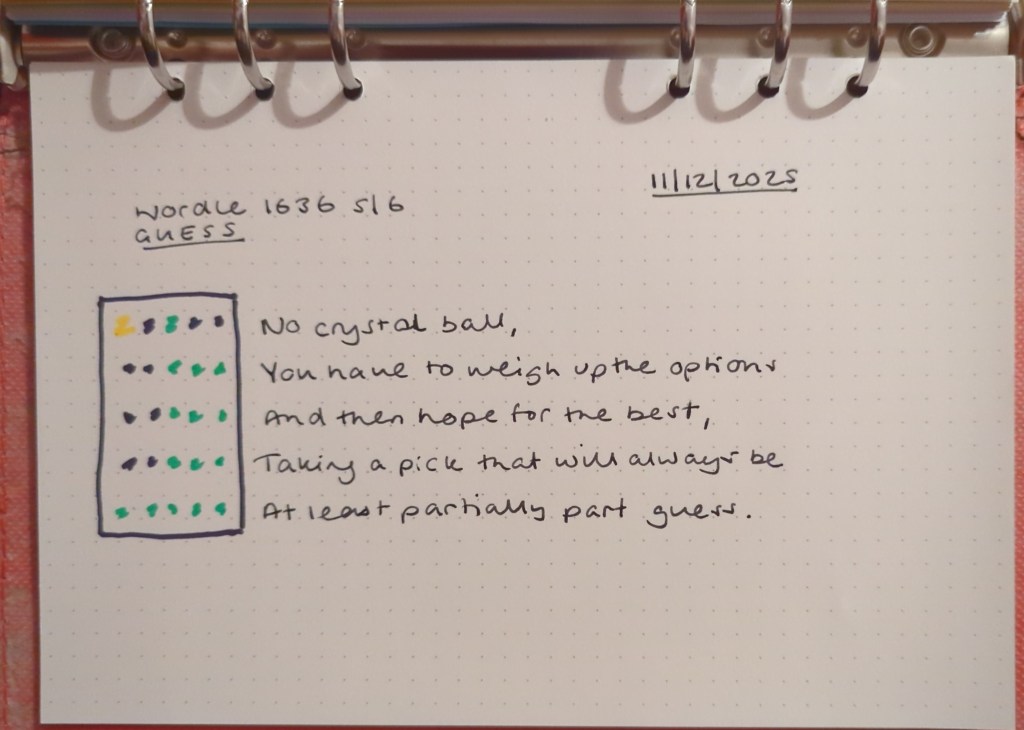 11/12/2025
Wordle 1636 5/6
GUESS
No crystal ball,
You have to weigh up the options
And then hope for the best,
Taking a pick that will always be
At least partially part guess.